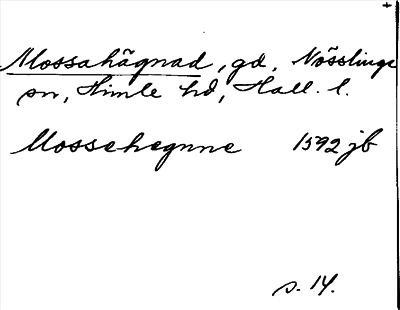 Mossahägnad, gd, Nösslinge
sn, Himle hd, Hall. l.
Mossehegnne 1592 jb
s. 14.